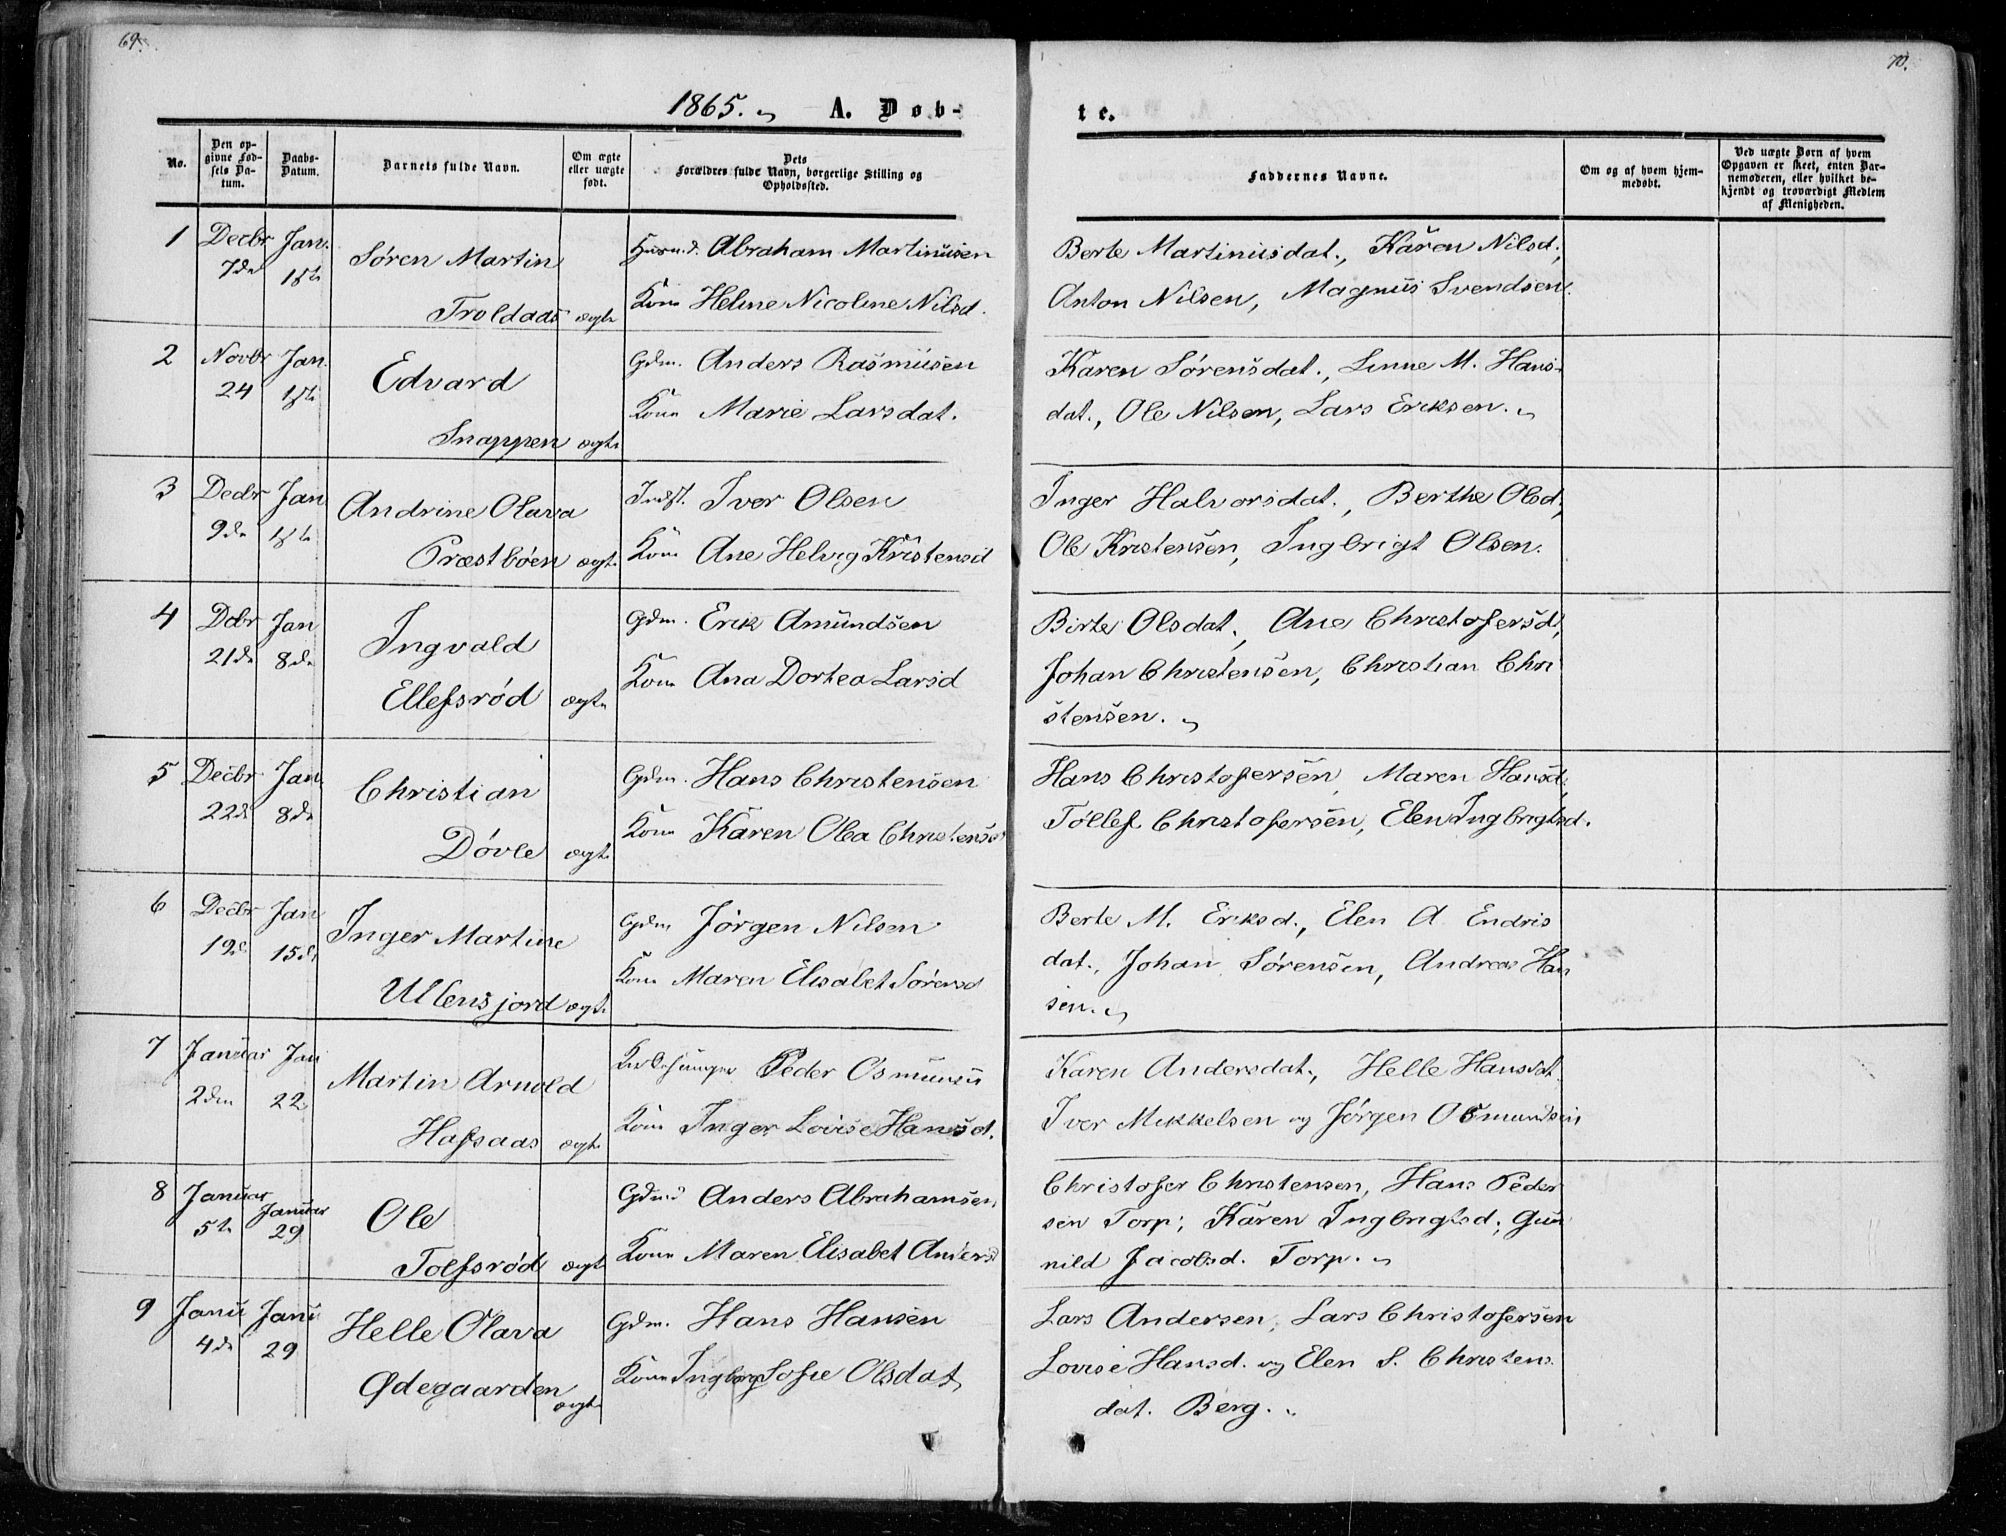 69.
70.
1865. A. Døb-
te.
No.
Den op-
givne Fød-
sels Da-
tum.
Daabs-
Datum.
Barnets fulde Navn.
Om ægte
eller uægte
født.
Dets
Forældres fulde Navn, borgerlige Stilling og
Opholdssted.
Faddernes Navne.
Om og af hvem hjem-
medøbt.
Ved uægte Børn af hvem
Opgaven er skeet, enten Bar-
nemoderen, eller hvilket be-
kjendt og troværdigt Medlem
af Menigheden.
1 Decbr Jan. Søren Martin Husm.d. Abraham Martinusen Berte Martinusdat., Karen Nilsd.,
7de 1ste Troldaas ægte Kone Heline Nicoline Nilsd. Anton Nilsen, Magnus Svendsen.
2 Novbr Jan. Edvard Gdm. Anders Rasmusen Karen Sørensdat., Linne M. Hans-
24 1ste Snappen ægte Kone Marie Larsdat. dat., Ole Nilsen, Lars Eriksen.
3 Decbr Jan Andrine Olava Indst. Iver Olsen Inger Halvorsdat., Berthe Olsd.,
9de 1ste Præstbøen ægte Kone Ane Helvig Kristensd Ole Kristensen, Ingbrigt Olsen.
4 Dcbr Jan Ingvald Gdm. Erik Amundsen Birte Olsdat., Ane Christofersd,
21de 8de Ellefsrød ægte Kone Ana Dortea Larsd Johan Christensen, Christian Chri
stensen.
5 Decbr Jan. Christian Gdm. Hans Christensen Hans Christofersen, Maren Hansd.,
22de 8de Døvle ægte Kone Karen Olea Christensd Tollef Christofersen, Elen Ingbrigtsd.
6 Decbr Jan Inger Martine Gdm Jørgen Nilsen Berte M. Eriksd., Elen A Endris
19de 15de Ullensjord ægte Kone Maren Elisabet Sørensd dat., Johan Sørensen, Andreas Han
sen.
7 Januar Jan Martin Arnold Kirkesanger Peder Osmunsen Karen Andersdat., Helle Hansdat.
2den 22 Hafsaas ægte Kone Inger Lovise Hansd. Iver Mikkelsen og Jørgen Osmundsen
8 Januar Januar Ole Gdmd Anders Abrahamsen Christofer Christensen, Hans Peder
5te 29 Tolfsrød ægte Kone Maren Elisabet Andersd sen Torp; Karen Ingbrigtsd; Gun
nild Jacobsd. Torp.
9 Janu Janu Helle Olava Gdm. Hans Hansen Lars Andersen, Lars Christofersen
4de 29 Ødegaarden ægte Kone Ingborg Sofie Olsdat Lovise Hansd. og Elen S. Christens
dat. Berg.